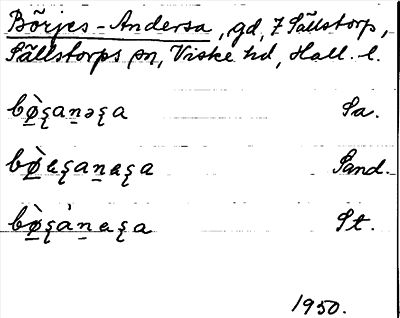 Börjes-Andersa, gd, 7 Sällstorp,
Sällstorps sn, Viske hd, Hall. l.
bø̠̀ȿan̠əȿa Sa.
bø̠̀ɐȿan̠ɐȿa Sand.
bø̠̀ȿàn̠ɐȿa St.
1950.